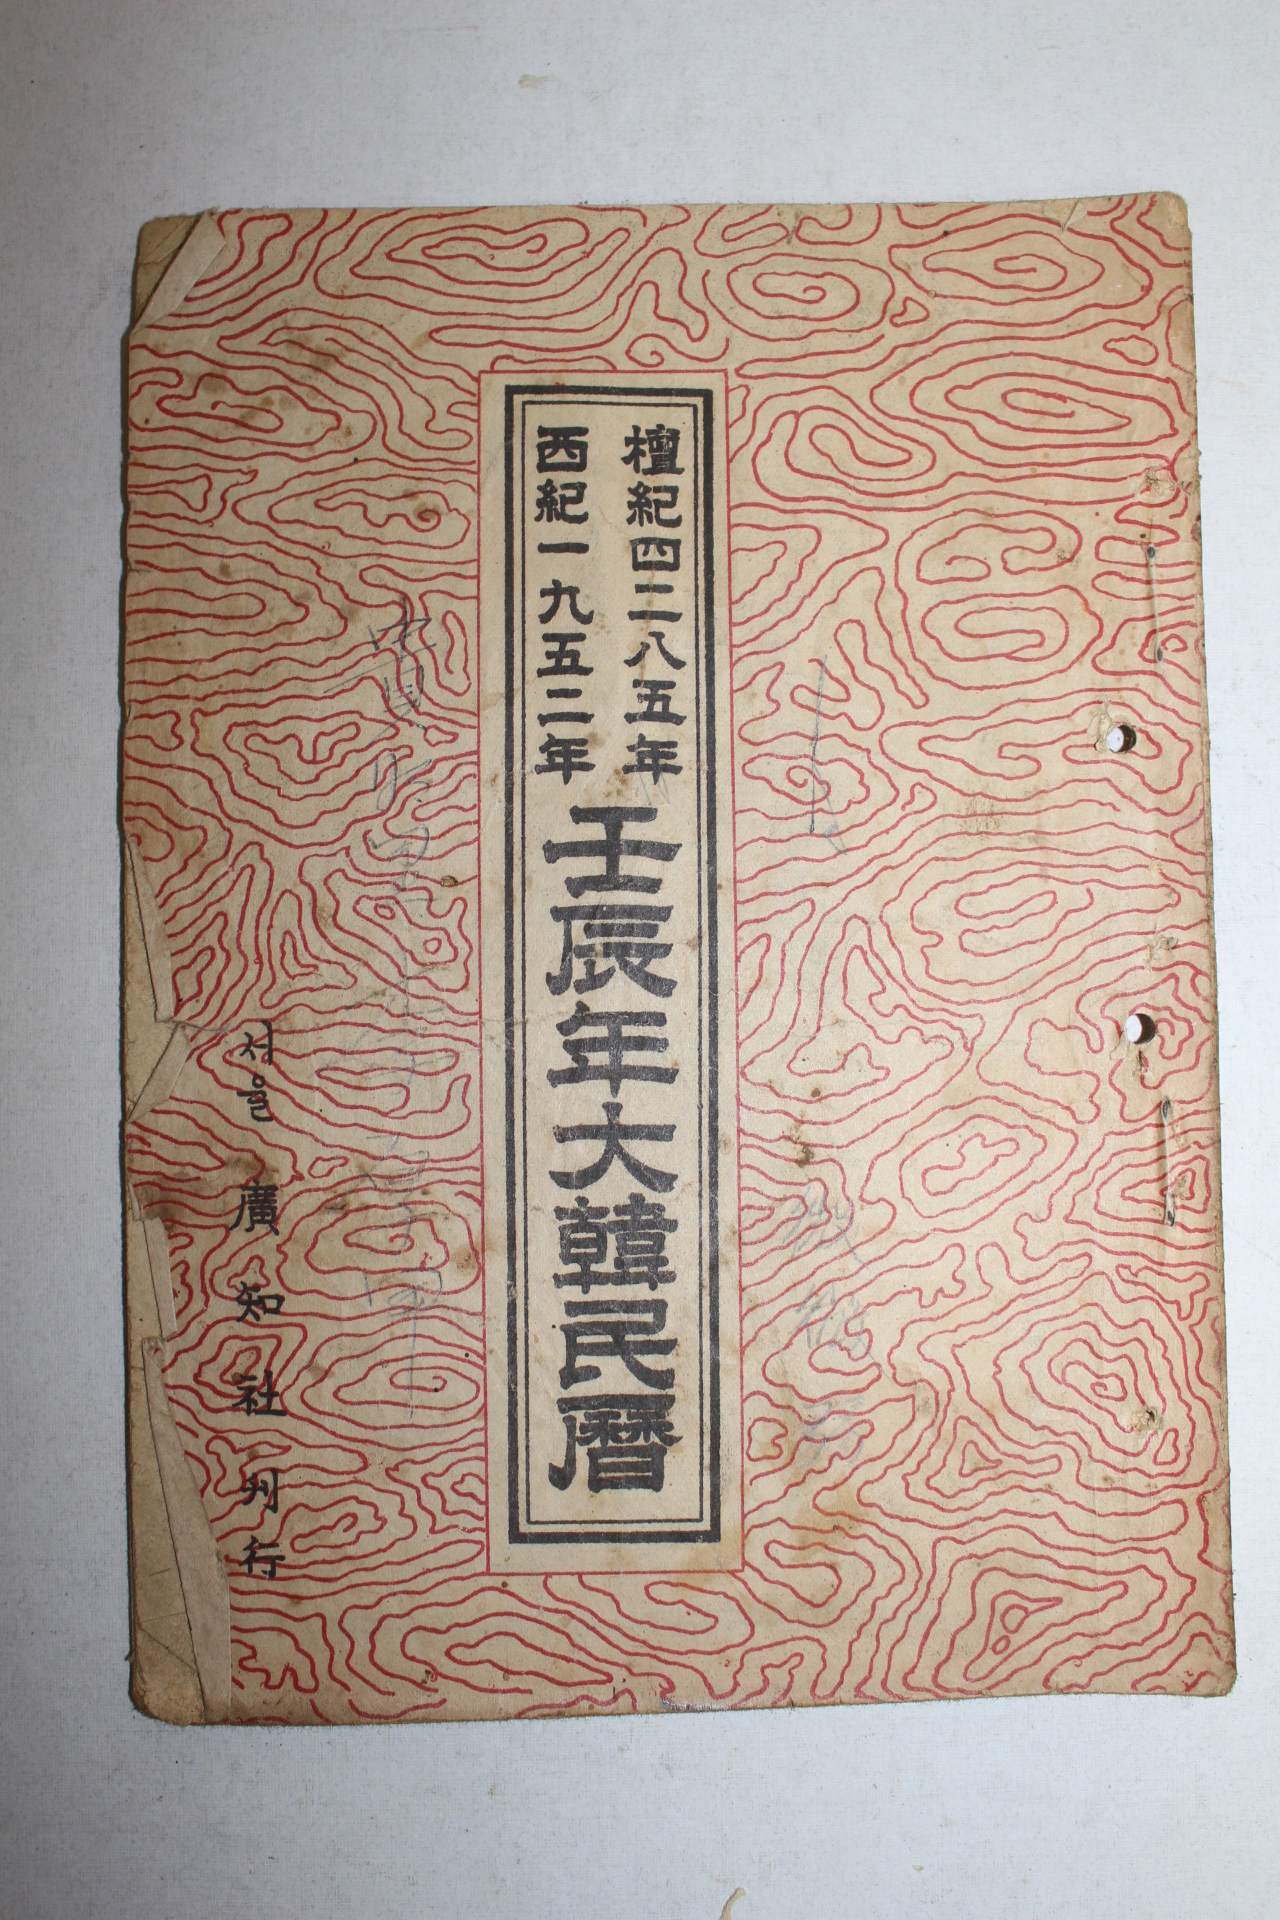 檀紀四二八五年
西紀一九五二年
壬辰年大韓民曆
서울 廣知社刊行